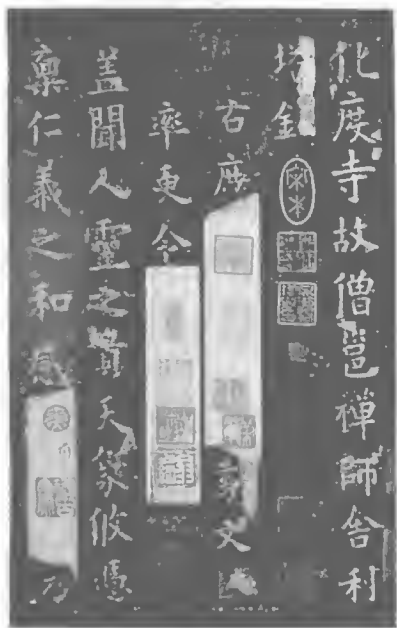 化度寺故僧邕禪師舍利
塔銘
宋本
右庶
文
率更令
蓋聞人靈之貴天象攸憑
稟仁義之和
乃